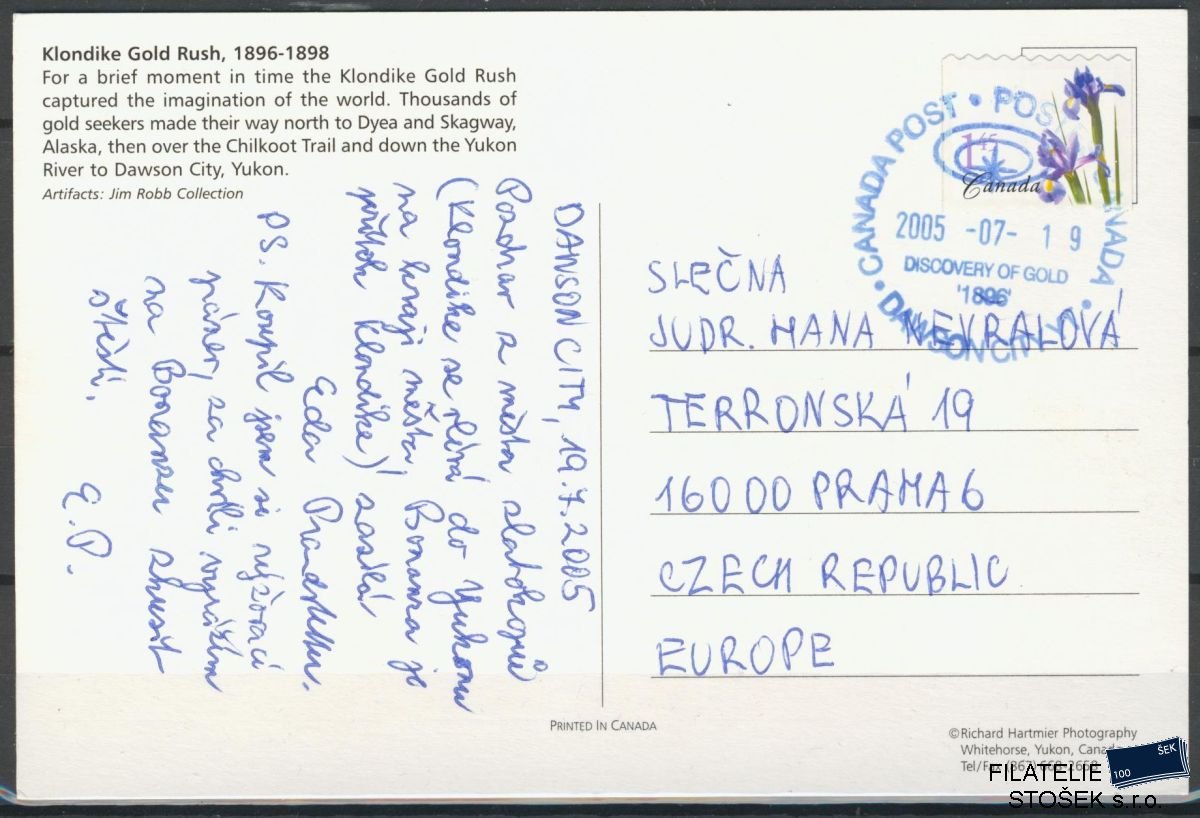 Klondike Gold Rush, 1896-1898
For a brief moment in time the Klondike Gold Rush
captured the imagination of the world. Thousands of
gold seekers made their way north to Dyea and Skagway,
Alaska, then over the Chilkoot Trail and down the Yukon
River to Dawson City, Yukon.
Artifacts: Jim Robb Collection
DAWSON CITY, 19.7.2005
Pozdrav z města zlatokopů
(Klondike se vlévá do Yukonu
na kraji města, Bonanza je
přítok Klondike) zasílá
Eda
PS. Koupil jsem si rýžovací
pánev, za chvíli vyrážím
na Bonanzu zkusit
štěstí.
E.P.
1 45
Canada
CANADA POST • POS NADA
2005 -07- 19
DISCOVERY OF GOLD
'1896'
DAWSON CITY
SLEČNA
JUDR. HANA NEVRALOVÁ
TERRONSKÁ 19
16000 PRAHA 6
CZECH REPUBLIC
EUROPE
PRINTED IN CANADA
©Richard Hartmier Photography
Whitehorse, Yukon, Canada
Tel/Fax (867) 668-2658
FILATELIE
STOŠEK s.r.o.
100
ŠEK